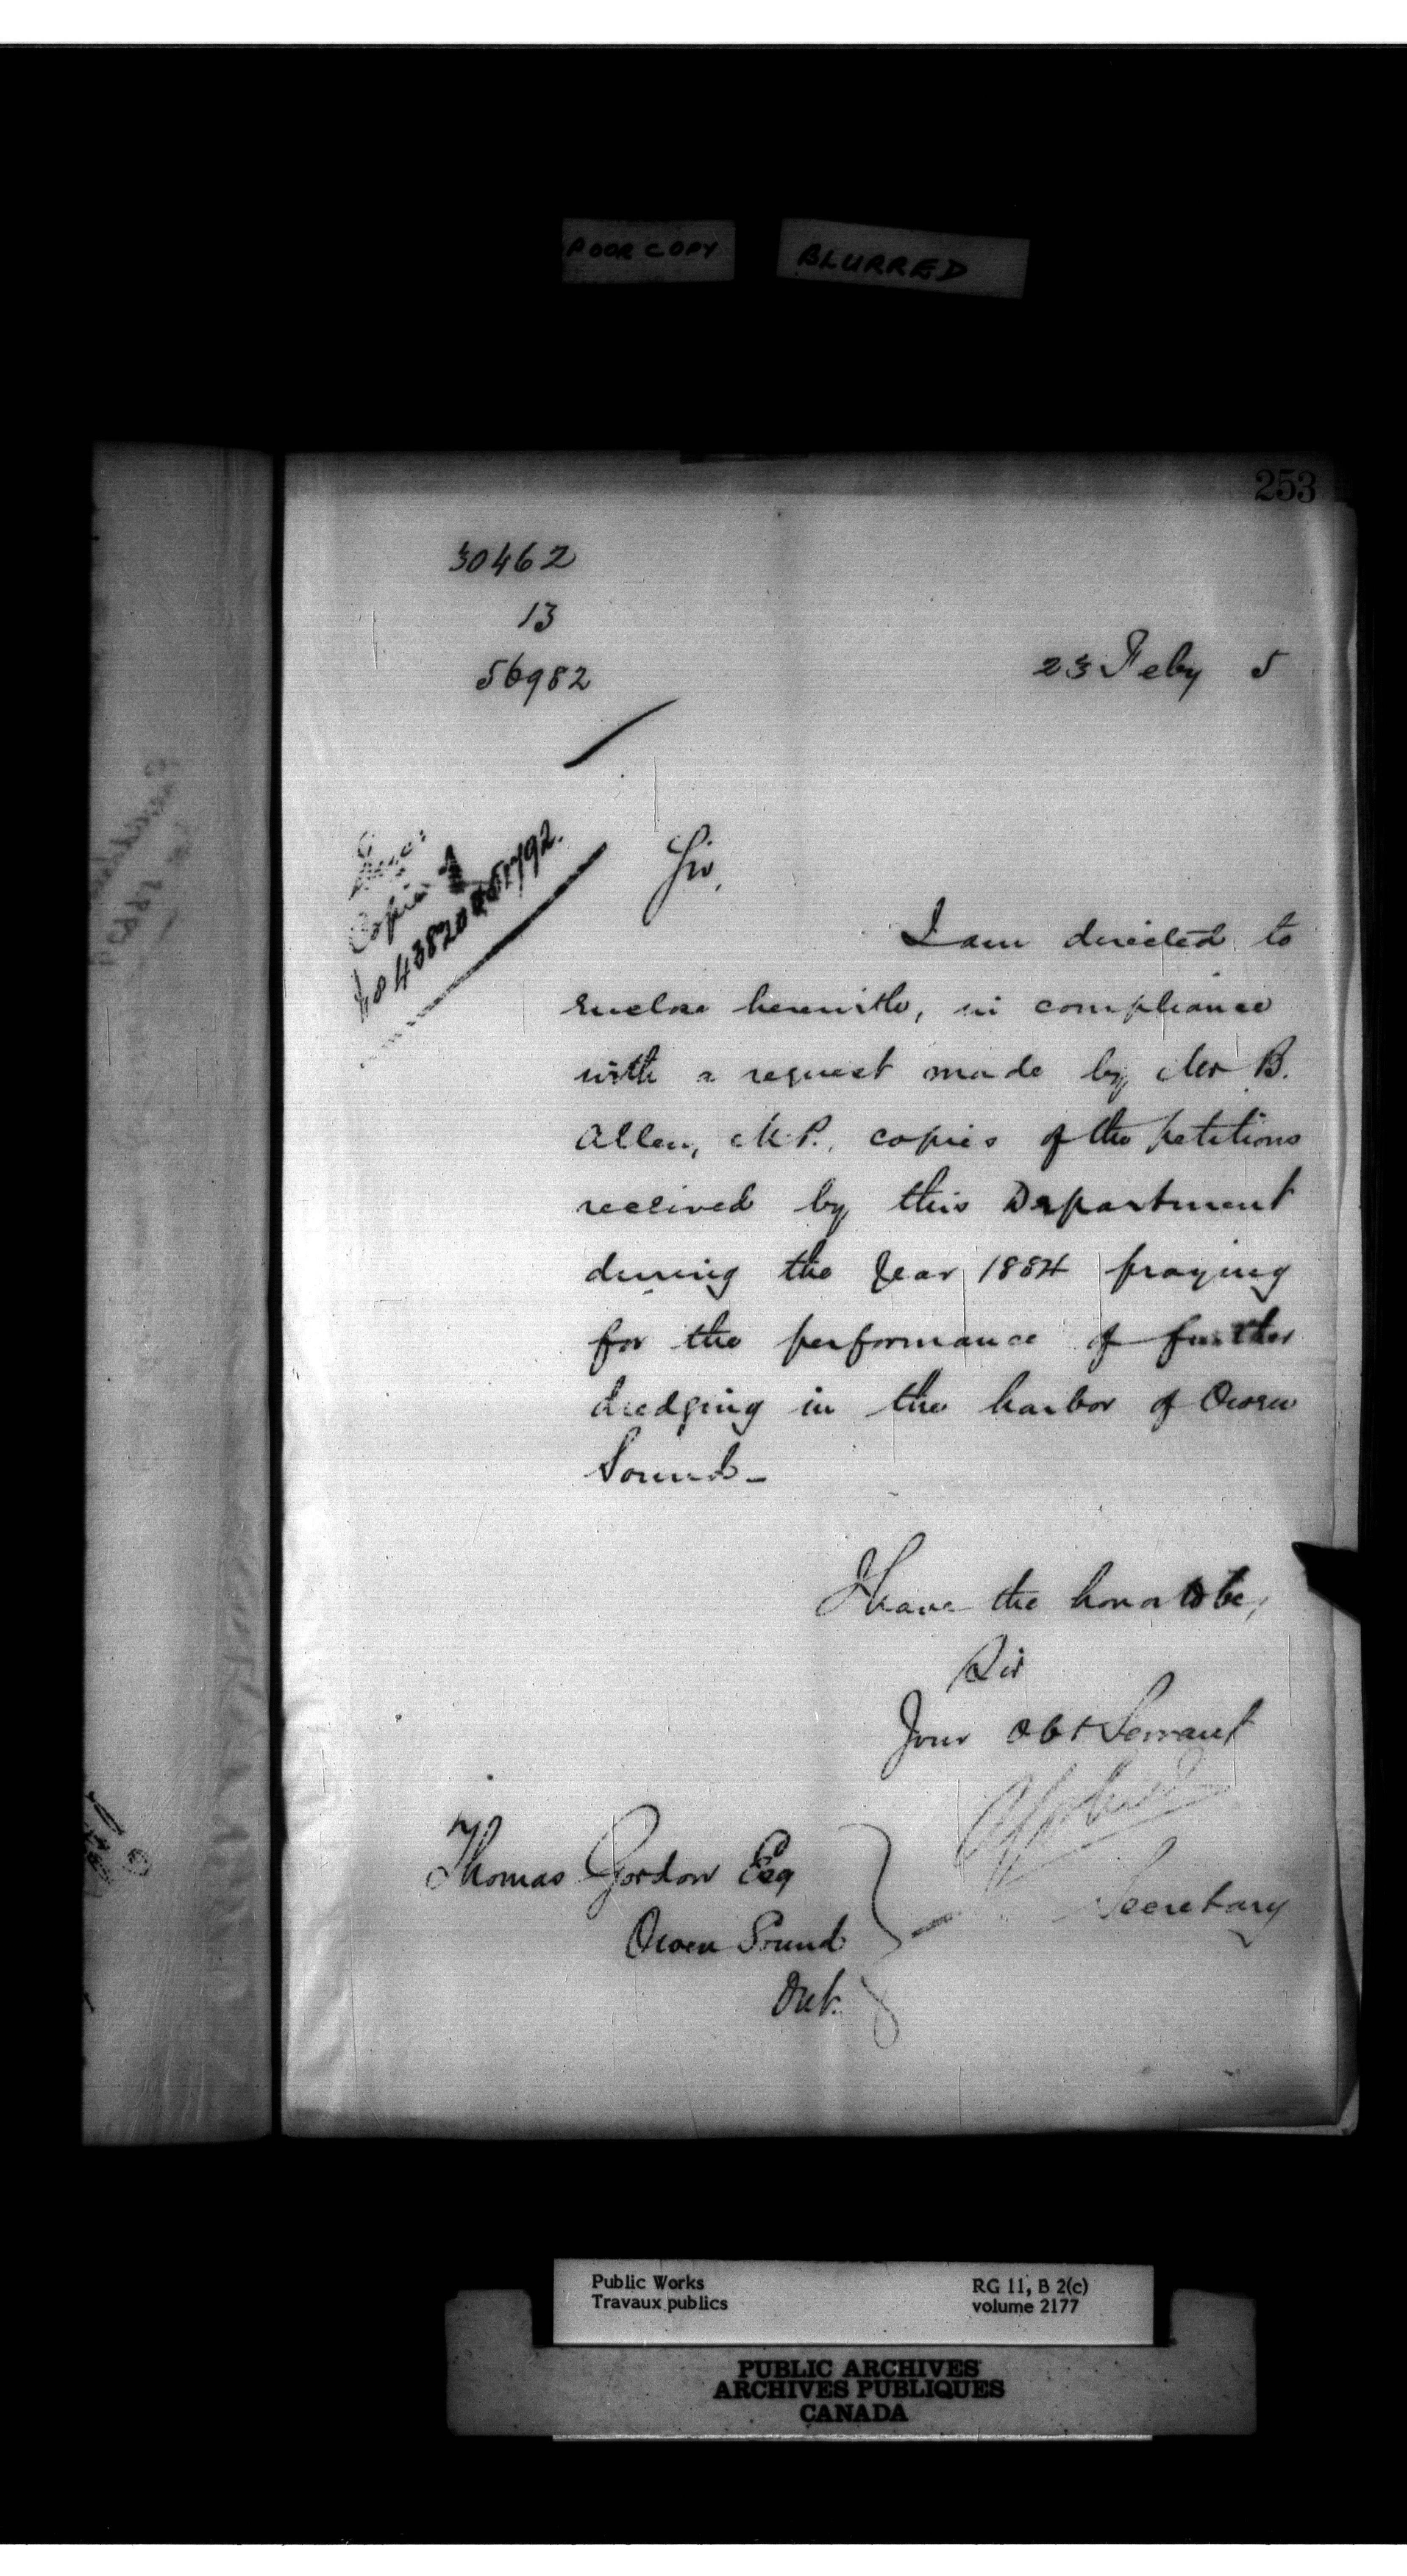 POOR COPY BLURRED
253
30462
13
56982
23 Feby 5
Copies
Sir,
I am directed to
enclose herewith, in compliance
with a request made by Mr B.
Allen, M.P., copies of the petitions
received by this Department
during the year 1884 praying
for the performance of further
dredging in the harbor of Owen
Sound -
I have the honor to be,
Sir
Your Obt Servant
Secretary
Thomas Gordon Esq
Owen Sound
Ont.
Public Works
Travaux publics
RG 11, B 2(c)
volume 2177
PUBLIC ARCHIVES
ARCHIVES PUBLIQUES
CANADA